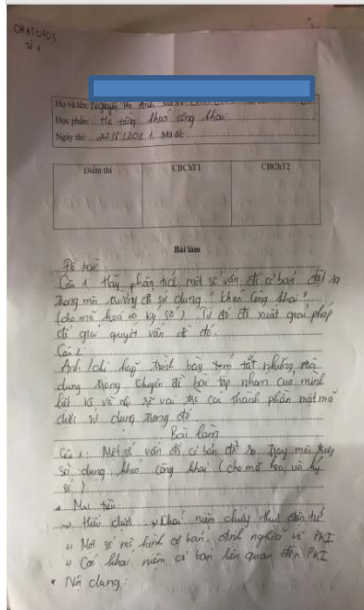 CHAT6ĐS
Họ và tên: Nguyễn Hà Anh Mã SV:
Học phần: Hạ tầng khoá công khai
Ngày thi: Mã đề:
Điểm thi CBChT1 CBChT2
Bài làm
Đề bài:
Câu 1: Hãy phân tích một số vấn đề cơ bản đặt ra
trong môi trường để sử dụng "khoá công khai"
(cho mã hoá và ký số). Từ đó đề xuất giải pháp
để giải quyết vấn đề đó.
Câu 2:
Anh/chị hãy trình bày tóm tắt những nội
dung trong chuyên đề bài tập nhóm của mình
và vai trò các thành phần mật mã
được sử dụng trong đó.
Bài làm
Câu 1: Một số vấn đề cơ bản đặt ra trong môi trường
sử dụng khoá công khai (cho mã hoá và ký
số).
* Mục tiêu:
Hiểu được khái niệm chứng thực điện tử
Một số mô hình cơ bản, định nghĩa về PKI
Các khái niệm cơ bản liên quan đến PKI
* Nội dung: